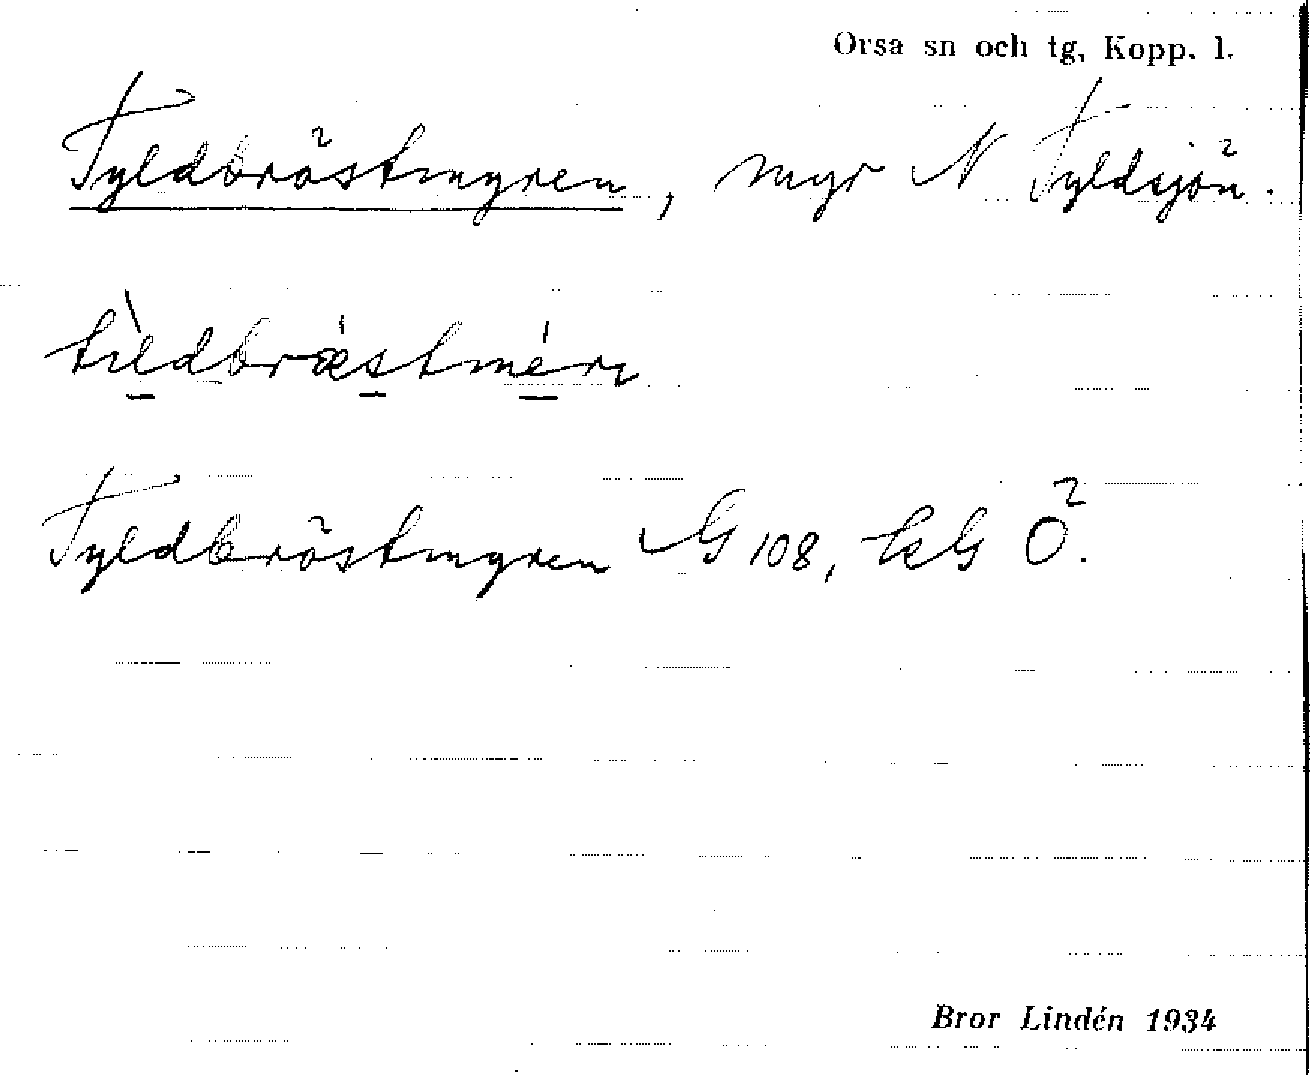 Orsa sn och tg, Kopp. l.
Tyldbröstmyren, myr N Tyldsjön.
Tyldbröstmyren G 108, kG Ö.
Bror Lindén 1934